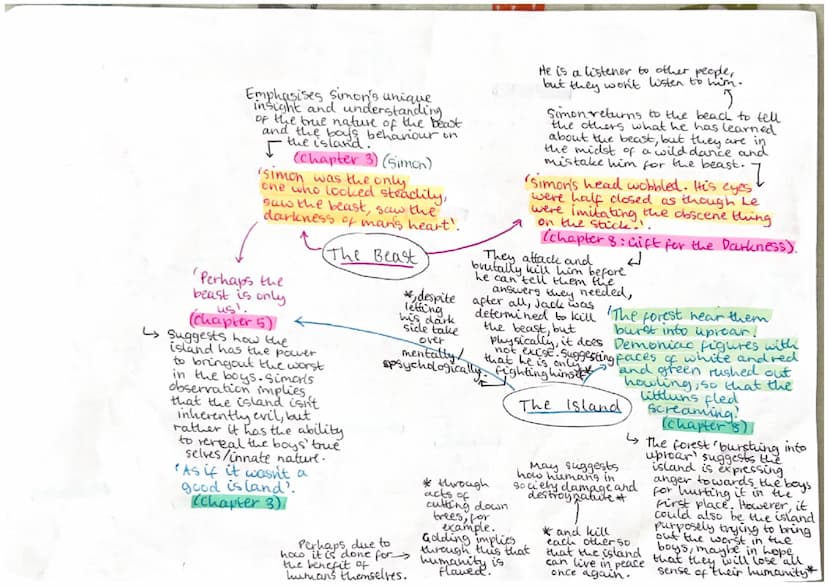 Emphasises Simon's unique
insight and understanding
of the true nature of the beast
and the boys behaviour on
the island.
(Chapter 3) (Simon)
'Simon was the only
one who looked steadily,
saw the beast, saw the
darkness of man's heart'.
He is a listener to other people,
but they won't listen to him.
Simon returns to the beach to tell
the others what he has learned
about the beast, but they are in
the midst of a wild dance and
mistake him for the beast.
'Simon's head wobbled. His eyes
were half closed as though he
were imitating the obscene thing
on the stick.'
(Chapter 8: Gift for the Darkness).
The Beast
They attack and
brutally kill him before
he can tell them the
answers they needed,
after all, Jack was
determined to kill
the beast, but
physically, it does
not exist. suggesting
that he is only
fighting himself*
*, despite
letting
his dark
side take
over
mentally/
psychologically.
'Perhaps the
beast is only
us'.
(Chapter 5)
Suggests how the
island has the power
to bring out the worst
in the boys. Simon's
observation implies
that the island isn't
inherently evil, but
rather it has the ability
to reveal the boys' true
selves/innate nature.
'As if it wasn't a
good island'.
(Chapter 3)
The Island
'The forest near them
burst into uproar.
Demoniac figures with
faces of white and red
and green rushed out
howling, so that the
littluns fled
screaming'.
(Chapter 8)
The forest 'bursting into
uproar' suggests the
island is expressing
anger towards the boys
for hurting it in the
first place. However, it
could also be the island
purposely trying to bring
out the worst in the
boys, maybe in hope
that they will lose all
sense of their humanity*
* and kill
each other so
that the island
can live in peace
once again.
May suggests
how humans in
society damage and
destroy nature*
* through
acts of
cutting down
trees, for
example.
Golding implies
through this that
humanity is
flawed.
Perhaps due to
how it is done for
the benefit of
humans themselves.